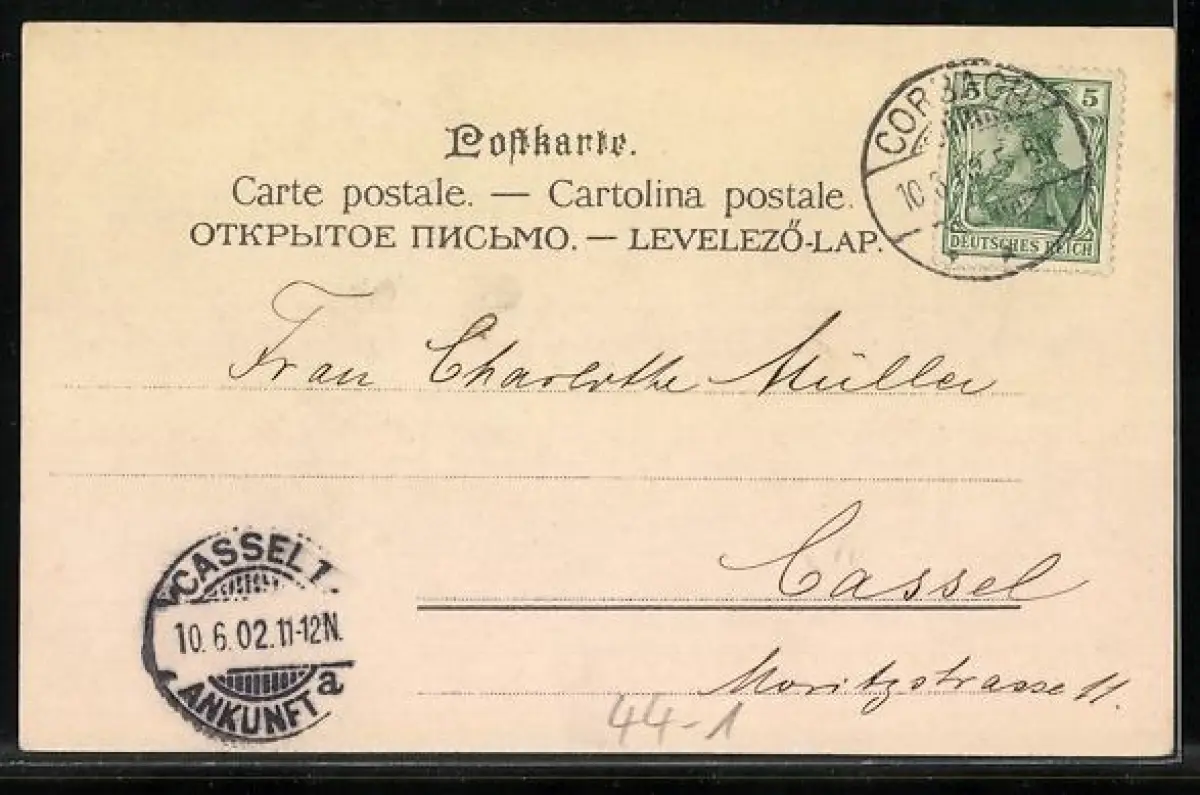 Postkarte.
Carte postale. — Cartolina postale.
ОТКРЫТОЕ ПИСЬМО. — LEVELEZŐ-LAP.
CORBACH
10.6.
5 5
DEUTSCHES REICH
Frau Charlotte Müller
Cassel
Moritzstrasse 11.
CASSEL 1
10.6.02.11-12N.
ANKUNFT a
44-1